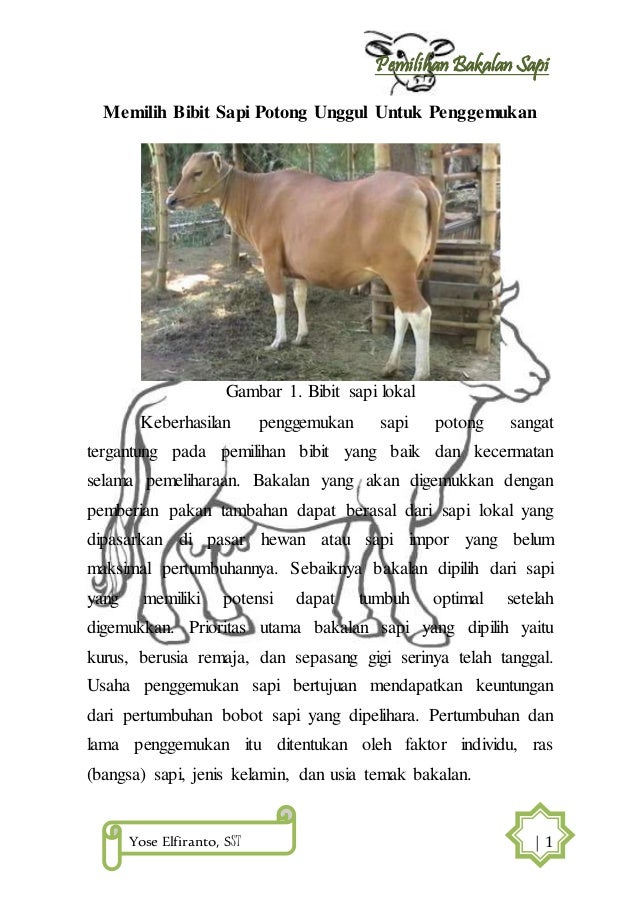 Pemilihan Bakalan Sapi
Memilih Bibit Sapi Potong Unggul Untuk Penggemukan
Gambar 1. Bibit sapi lokal
Keberhasilan penggemukan sapi potong sangat
tergantung pada pemilihan bibit yang baik dan kecermatan
selama pemeliharaan. Bakalan yang akan digemukkan dengan
pemberian pakan tambahan dapat berasal dari sapi lokal yang
dipasarkan di pasar hewan atau sapi impor yang belum
maksimal pertumbuhannya. Sebaiknya bakalan dipilih dari sapi
yang memiliki potensi dapat tumbuh optimal setelah
digemukkan. Prioritas utama bakalan sapi yang dipilih yaitu
kurus, berusia remaja, dan sepasang gigi serinya telah tanggal.
Usaha penggemukan sapi bertujuan mendapatkan keuntungan
dari pertumbuhan bobot sapi yang dipelihara. Pertumbuhan dan
lama penggemukan itu ditentukan oleh faktor individu, ras
(bangsa) sapi, jenis kelamin, dan usia temak bakalan.
Yose Elfiranto, SST
| 1